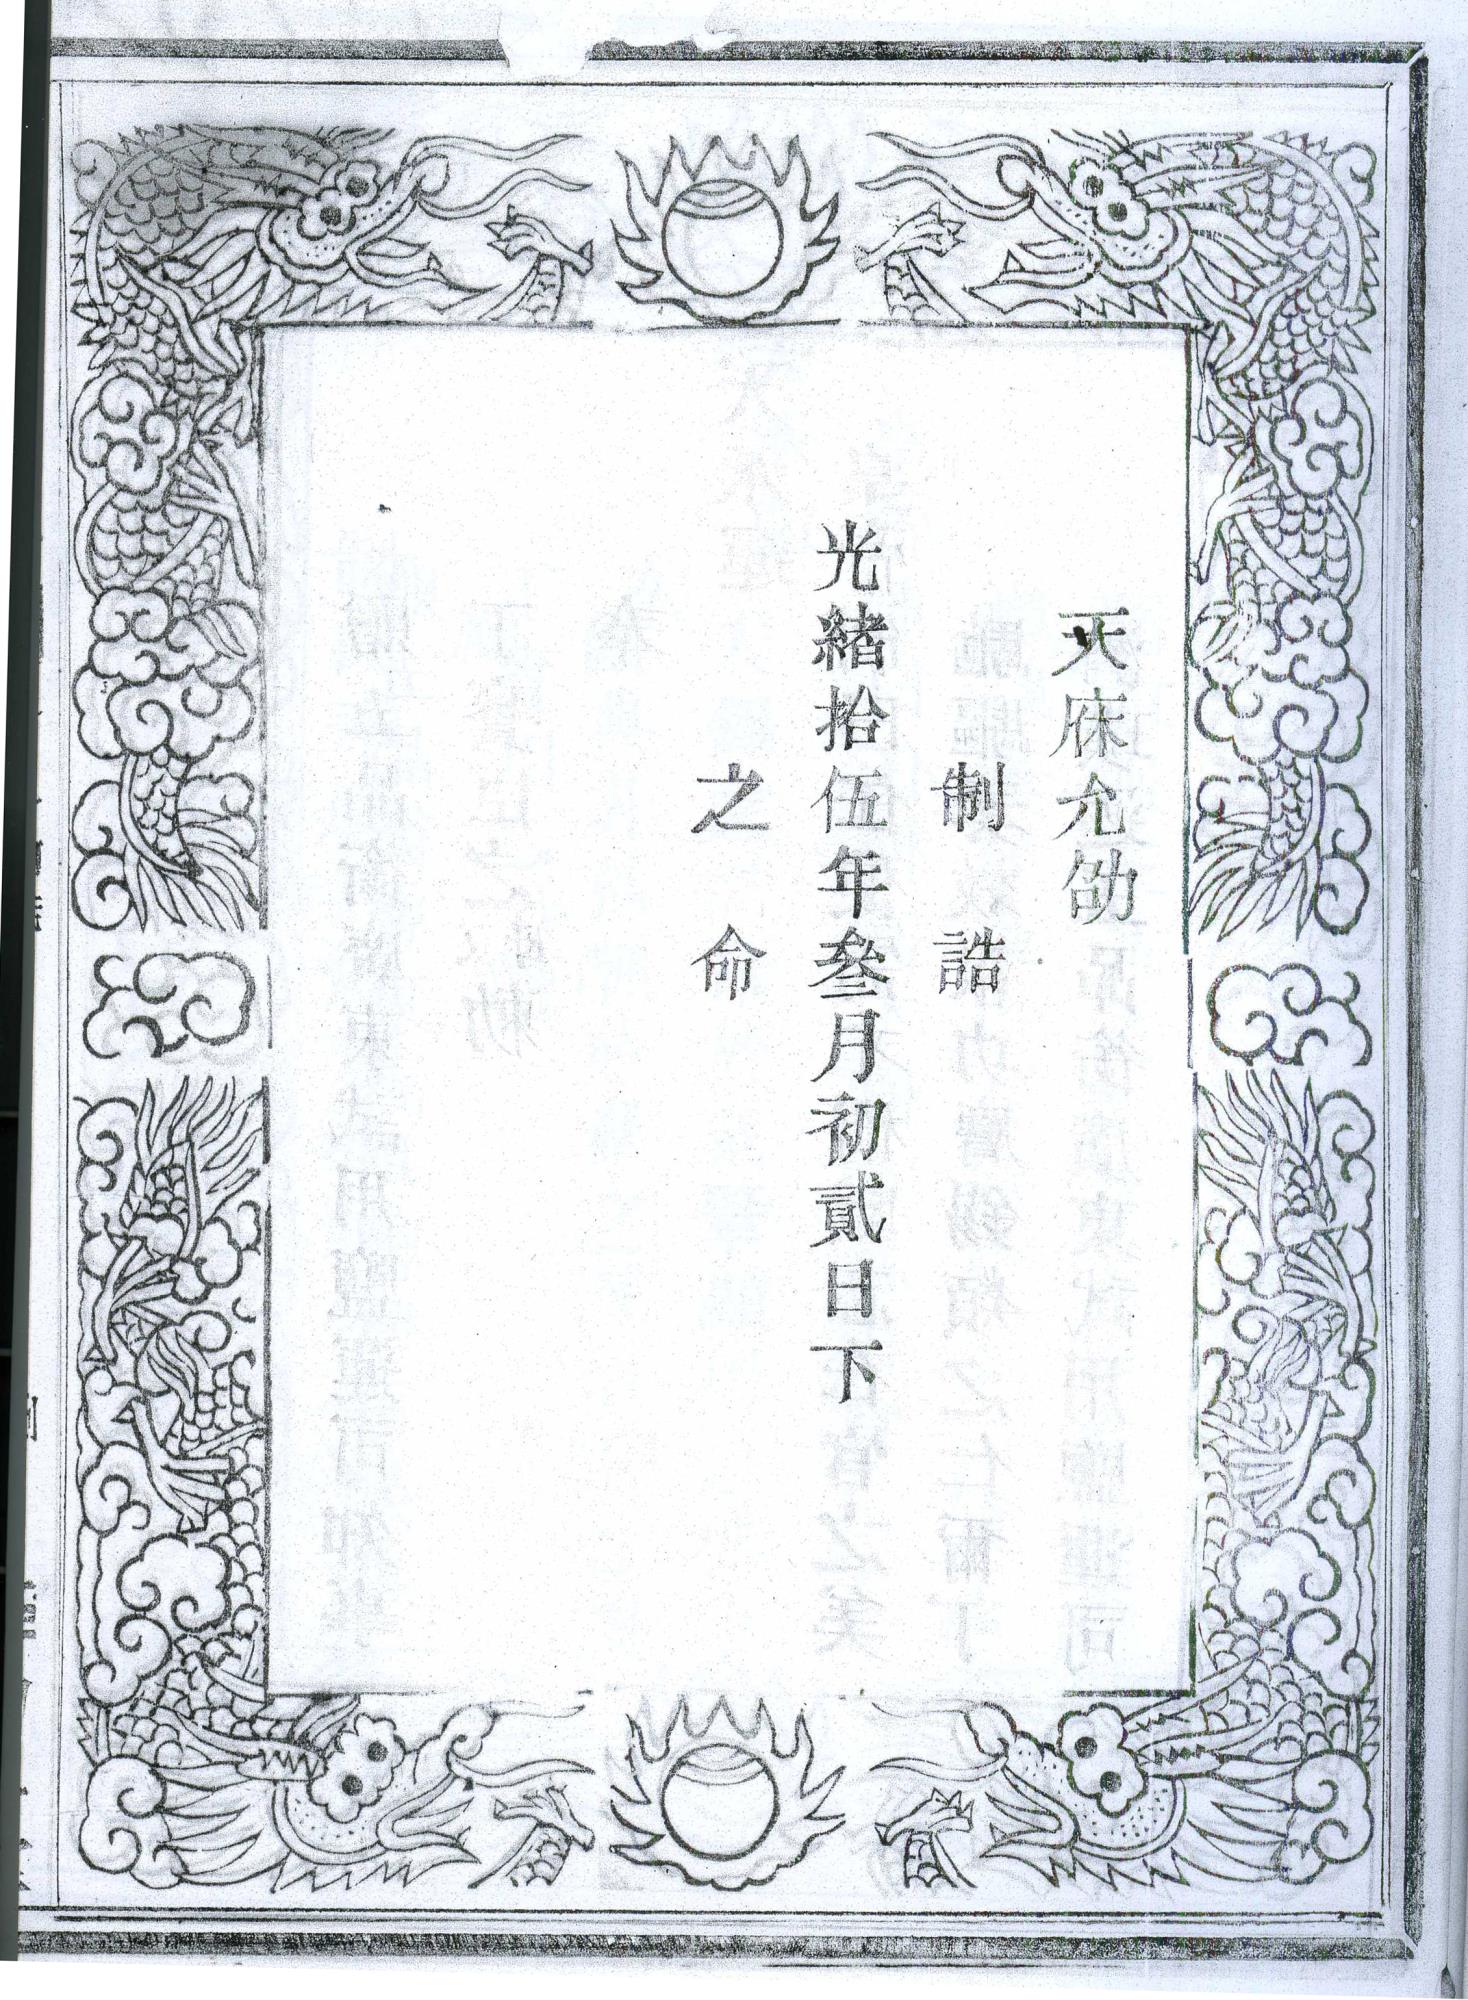 天庥允劭
制誥
光緒拾伍年叄月初貳日下
之命